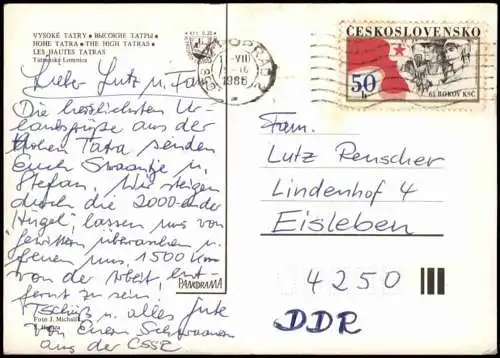 VYSOKÉ TATRY • ВЫСОКИЕ ТАТРЫ •
HOHE TATRA • THE HIGH TATRAS •
LES HAUTES TATRAS
Tatranská Lomnica
Lieber Lutz u. Fam.
Die herzlichsten Ur-
laubsgrüße aus der
Hohen Tatra senden
Euch Swaantje u.
Stefan. Wir steigen
durch die 2000-ender
"Hügel", lassen uns von
Gewittern überraschen u.
freuen uns, 1500 km
von der Arbeit ent-
fernt zu sein.
Tschüß u. alles Gute
von Euren
aus der CSSR
Foto J. Michalík,
PANORAMA
POPRAD
VIII
1986
ČESKOSLOVENSKO
50 h
65 ROKOV KSČ
Fam.
Lutz Renscher
Lindenhof 4
Eisleben
4250
DDR